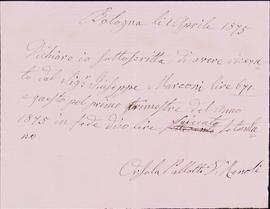 Bologna li 1 Aprile 1875
Dichiaro io sottoscritta di avere riceva
to dal Sig.r Giuseppe Marconi lire 671
e questo pel primo trimestre del anno
1875 in fede dico lire Seicento Setanta
no
Orsola Pallotti